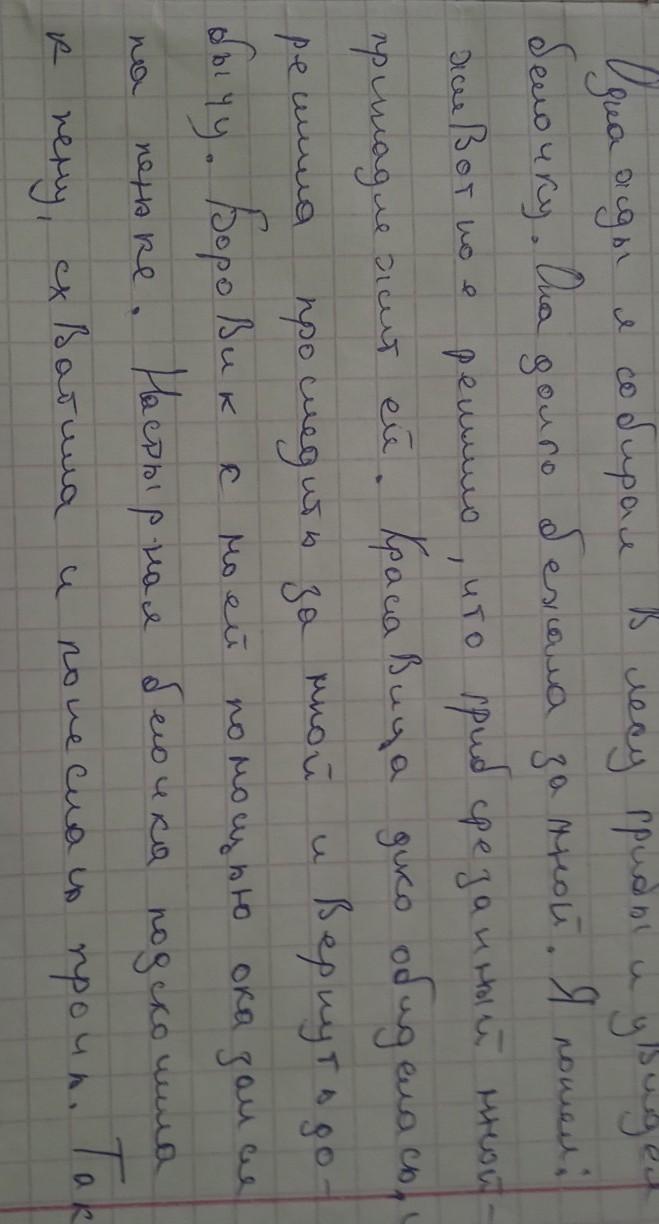 Однажды я собирал в лесу грибы и увидел
белочку. Она долго бежала за мной. Я понял:
животное решило, что гриб срезанный мной -
принадлежит ей. Красавица дико обиделась, и
решила проследить за мной и вернуть до-
бычу. Боровик с моей помощью оказался
на пеньке. Настырная белочка подскочила
к пеню, схватила и понеслась прочь. Так